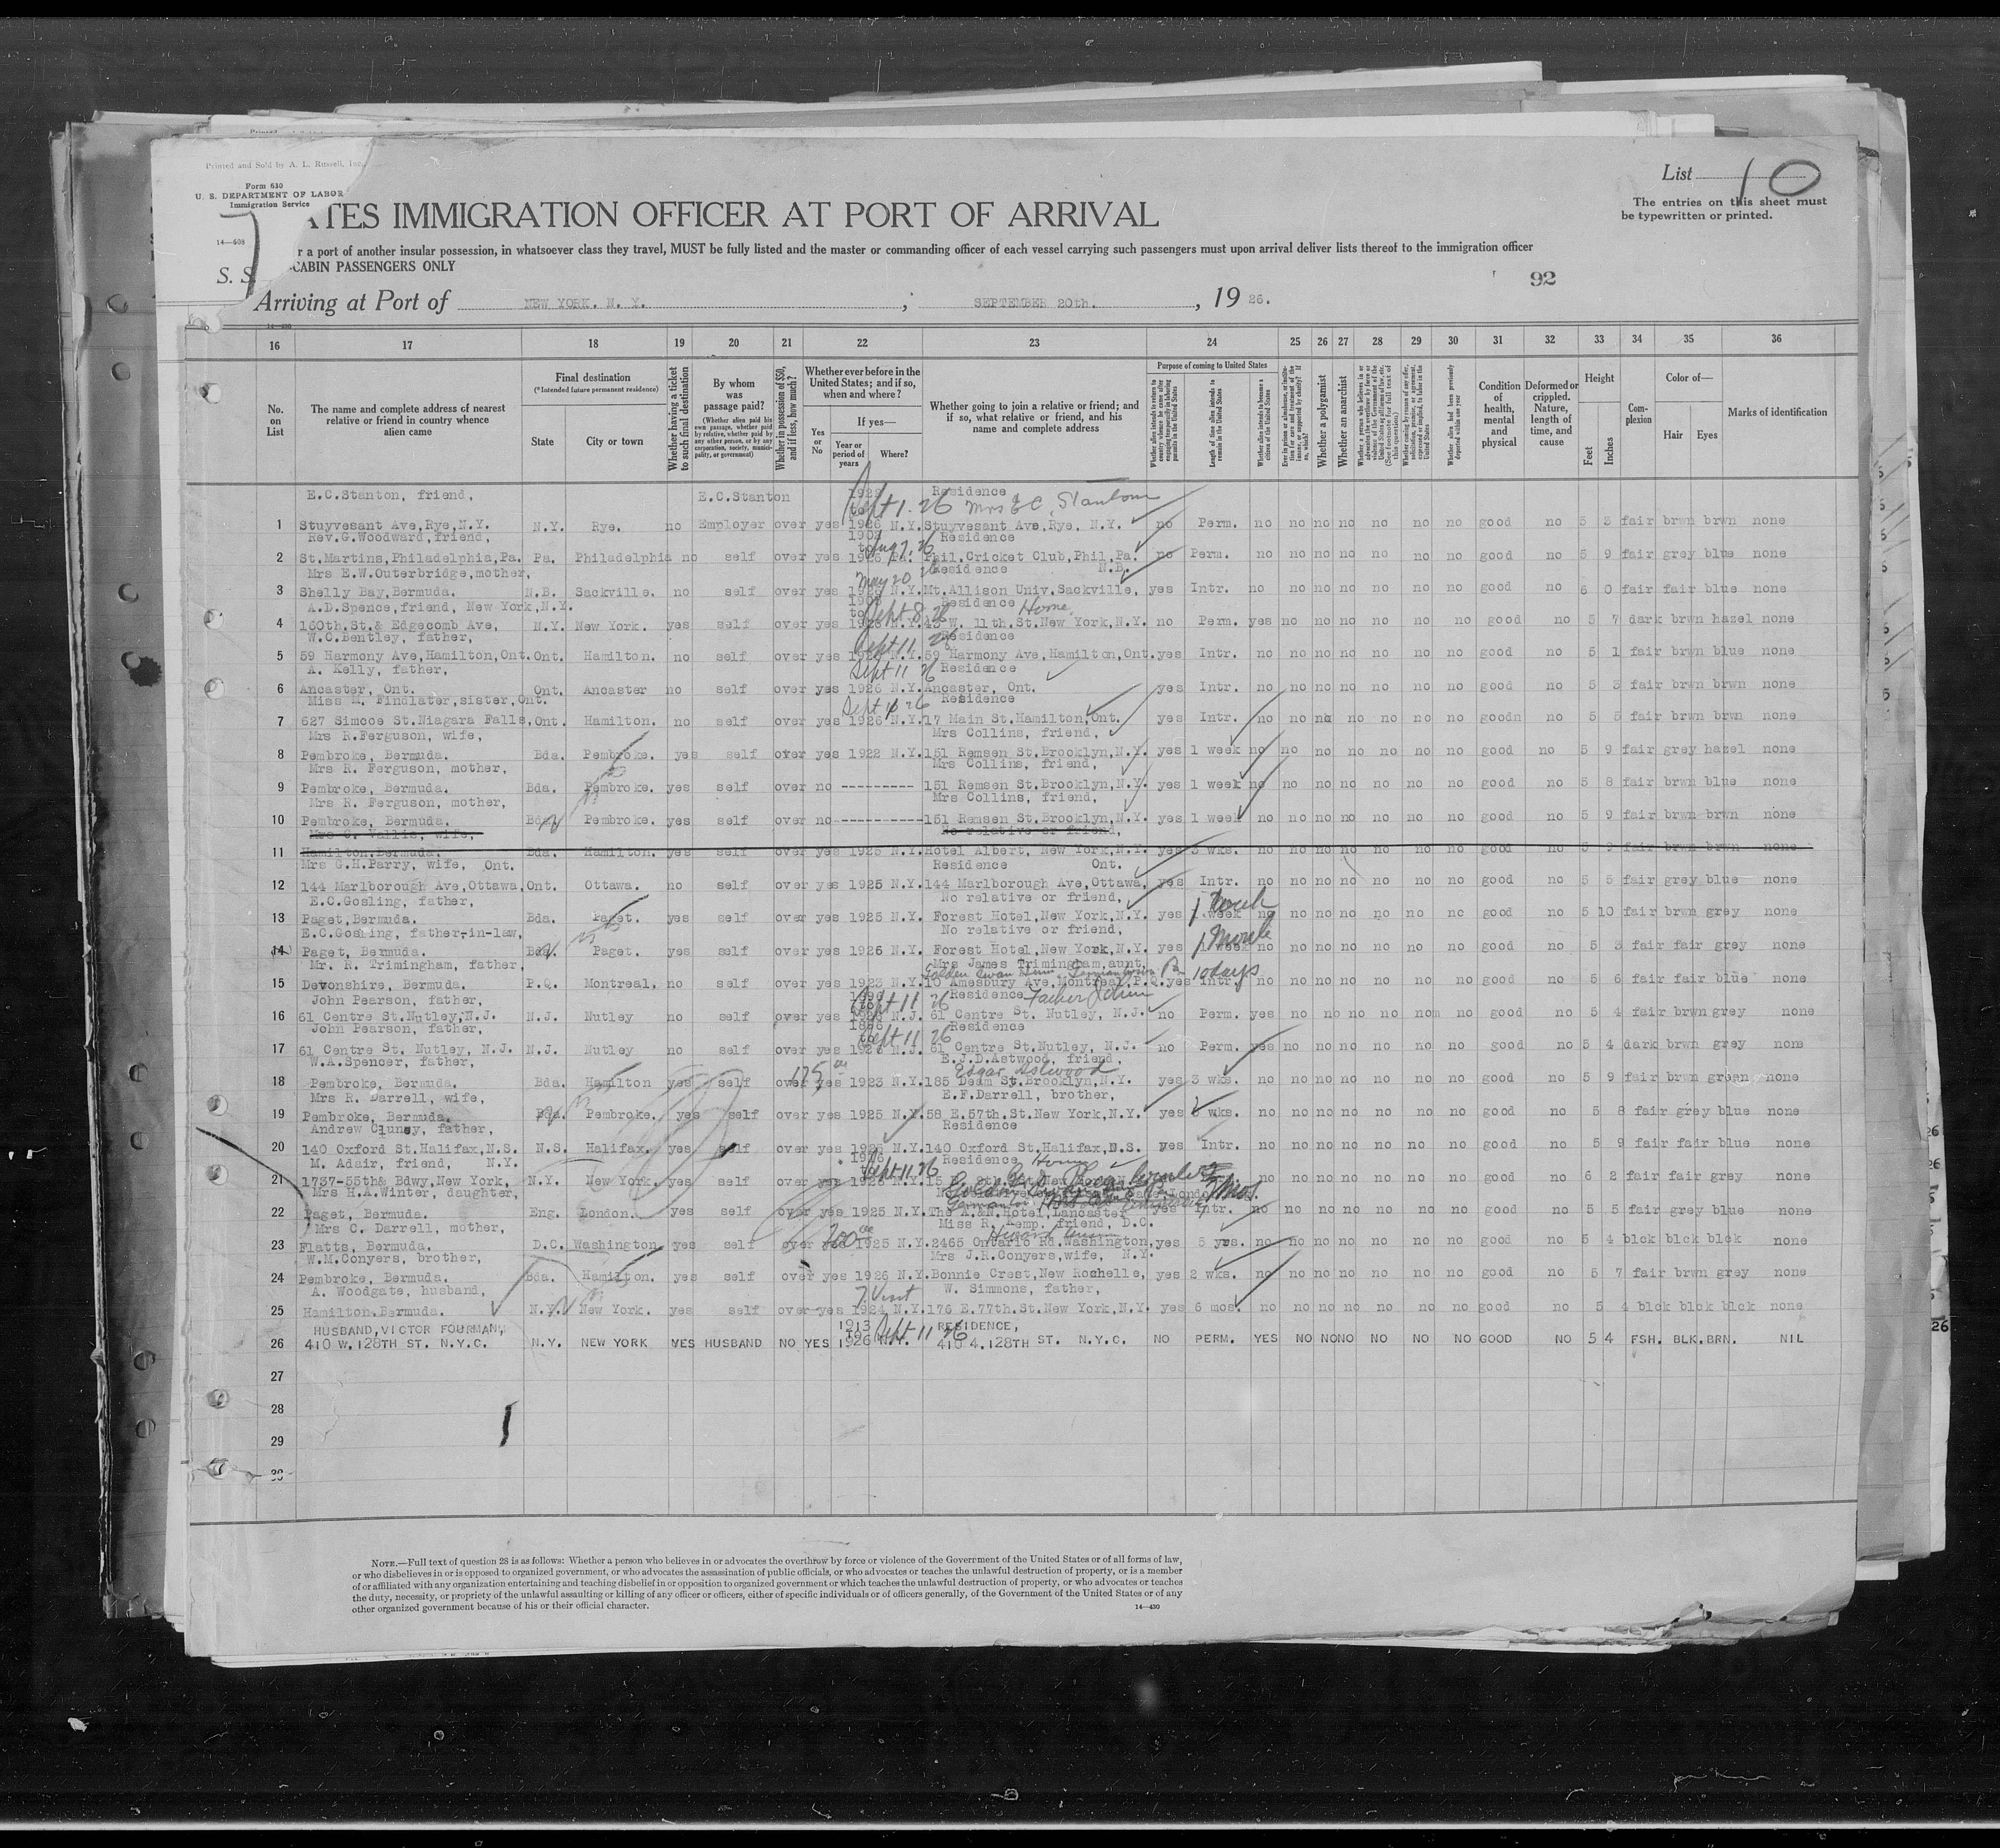 Printed and Sold by A. L. Russell, Inc.
Form 630
U. S. DEPARTMENT OF LABOR
Immigration Service
14—608
S. S.
List 10
The entries on this sheet must
be typewritten or printed.
ATES IMMIGRATION OFFICER AT PORT OF ARRIVAL
r a port of another insular possession, in whatsoever class they travel, MUST be fully listed and the master or commanding officer of each vessel carrying such passengers must upon arrival deliver lists thereof to the immigration officer
-CABIN PASSENGERS ONLY
92
Arriving at Port of NEW YORK. N. Y. , SEPTEMBER 20th. , 19 26.
16 17 18 19 20 21 22 23 24 25 26 27 28 29 30 31 32 33 34 35 36
No. on List
The name and complete address of nearest relative or friend in country whence alien came
Final destination
(*Intended future permanent residence)
State
City or town
Whether having a ticket to such final destination
By whom was passage paid?
Whether in possession of $50, and if less, how much?
Whether ever before in the United States; and if so, when and where?
Yes or No
If yes—
Year or period of years
Where?
Whether going to join a relative or friend; and if so, what relative or friend, and his name and complete address
Purpose of coming to United States
Length of time alien intends to remain in the United States
Whether a polygamist
Whether an anarchist
Condition of health, mental and physical
Deformed or crippled. Nature, length of time, and cause
Height
Feet
Inches
Complexion
Color of—
Hair
Eyes
Marks of identification
E.C.Stanton, friend, E.C.Stanton Residence
Sept 1. 26 Mrs E C. Stanton
1 Stuyvesant Ave,Rye,N.Y. N.Y. Rye. no Employer over yes 1926 N.Y. Stuyvesant Ave,Rye, N.Y. no Perm. no no no no no no no good no 5 3 fair brwn brwn none
Rev.G.Woodward,friend, Residence
Aug 7. 26
2 St.Martins,Philadelphia,Pa. Pa. Philadelphia no self over yes 1926 Pa. Phil.Cricket Club,Phil,Pa. no Perm. no no no no no no no good no 5 9 fair grey blue none
Mrs E.W.Outerbridge,mother, Residence N.B.
May 20 26
3 Shelly Bay,Bermuda. N.B. Sackville. no self over yes N.Y. Mt.Allison Univ,Sackville, yes Intr. no no no no no no no good no 6 0 fair fair blue none
A.D.Spence,friend, New York,N.Y. Residence Home
Sept 8 26
4 160th.St.& Edgecomb Ave, N.Y. New York. yes self over yes N.Y. W. 11th.St.New York,N.Y. no Perm. yes no no no no no no good no 5 7 dark brwn hazel none
W.C.Bentley, father, Residence
Sept 11
5 59 Harmony Ave,Hamilton,Ont. Ont. Hamilton. no self over yes N.Y. 59 Harmony Ave,Hamilton,Ont. yes Intr. no no no no no no no good no 5 1 fair brwn blue none
A. Kelly, father, Residence
Sept 11 26
6 Ancaster, Ont. Ont. Ancaster no self over yes 1926 N.Y. Ancaster, Ont. yes Intr. no no no no no no no good no 5 3 fair brwn brwn none
Miss M. Findlater,sister,Ont. Residence
7 627 Simcoe St.Niagara Falls, Ont. Hamilton. no self over yes 1926 N.Y. 17 Main St.Hamilton,Ont. yes Intr. no no no no no no no goodn no 5 5 fair brwn brwn none
Mrs R.Ferguson, wife, Mrs Collins, friend,
8 Pembroke, Bermuda. Bda. Pembroke. yes self over yes 1922 N.Y. 151 Remsen St.Brooklyn,N.Y. yes 1 week no no no no no no no good no 5 9 fair grey hazel none
Mrs R. Ferguson, mother, Mrs Collins, friend,
9 Pembroke, Bermuda. Bda. Pembroke. yes self over no ---------- 151 Remsen St.Brooklyn,N.Y. yes 1 week no no no no no no no good no 5 8 fair brwn blue none
Mrs R. Ferguson, mother, Mrs Collins, friend,
10 Pembroke, Bermuda. Pembroke. yes self over no ---------- 151 Remsen St.Brooklyn,N.Y. yes 1 week no no no no no no no good no 5 9 fair brwn brwn none
Mrs C. Vallis, wife, No relative or friend,
11 Hamilton.Bermuda. Bda. Hamilton. yes self over yes 1925 N.Y. Hotel Albert, New York,N.Y. yes 3 wks. no no no no no no no good no 5 9 fair brwn brwn none
Mrs G.H.Parry, wife, Ont. Residence Ont.
12 144 Marlborough Ave,Ottawa, Ont. Ottawa. no self over yes 1925 N.Y. 144 Marlborough Ave,Ottawa, yes Intr. no no no no no no no good no 5 5 fair grey blue none
E.C.Gosling, father, No relative or friend,
13 Paget,Bermuda. Bda. Paget. yes self over yes 1925 N.Y. Forest Hotel,New York,N.Y. yes 1 week no no no no no no no good no 5 10 fair brwn grey none
E.C.Gosling, father-in-law, No relative or friend,
14 Paget, Bermuda. Paget. yes self over yes 1926 N.Y. Forest Hotel,New York,N.Y. yes week no no no no no no no good no 5 3 fair fair grey none
Mr. R. Trimingham, father, Mrs James Trimingham,aunt,
15 Devonshire, Bermuda. P.Q. Montreal, no self over yes 1923 N.Y. 10 Amesbury Ave,Montreal,P.Q. yes Intr. 10 days no no no no no no no good no 5 6 fair fair blue none
John Pearson, father, Residence Father John
Sept 11 26
16 61 Centre St.Nutley,N.J. N.J. Nutley no self over yes 1926 N.J. 61 Centre St. Nutley, N.J. no Perm. yes no no no no no no good no 5 4 fair brwn grey none
John Pearson, father, 1886 Residence
Sept 11 26
17 61 Centre St. Nutley, N.J. N.J. Nutley no self over yes 1926 N.J. 61 Centre St.Nutley, N.J. no Perm. yes no no no no no no good no 5 4 dark brwn grey none
W.A.Spencer, father, E.J.D.Astwood, friend,
175 00 Edgar Astwood
18 Pembroke, Bermuda. Bda. Hamilton yes self over yes 1923 N.Y. 185 Dean St.Brooklyn,N.Y. yes 3 wks. no no no no no no no good no 5 9 fair brwn green none
Mrs R. Darrell, wife, E.F.Darrell, brother,
19 Pembroke, Bermuda. Bda. Pembroke. yes self over yes 1925 N.Y. 58 E.57th.St.New York,N.Y. yes wks. no no no no no no no good no 5 8 fair grey blue none
Andrew Cluney, father, Residence
20 140 Oxford St.Halifax,N.S. N.S. Halifax. yes self over yes 1925 N.Y. 140 Oxford St.Halifax,N.S. yes Intr. no no no no no no no good no 5 9 fair fair blue none
M. Adair, friend, N.Y. Residence Home
Sept 11 26
21 1737-55th& Bdwy,New York, N.Y. New York. yes self over yes 1926 N.Y. no no no no no no good no 6 2 fair fair grey none
Mrs H.A.Winter, daughter,
22 Paget, Bermuda. Eng. London. yes self over yes 1925 N.Y. The A.&N.Hotel,Lancaster yes Intr. no no no no no no no good no 5 5 fair grey blue none
Mrs C. Darrell, mother, Miss R. Kemp. friend, D.C.
200 00
23 Flatts, Bermuda. D.C. Washington. yes self over 1925 N.Y. 2465 Ontario Rd.Washington, yes 5 yrs. no no no no no no no good no 5 4 blck blck blck none
W.M.Conyers, brother, Mrs J.R.Conyers,wife, N.Y.
24 Pembroke, Bermuda. Bda. Hamilton. yes self over yes 1926 N.Y. Bonnie Crest,New Rochelle, yes 2 wks. no no no no no no no good no 5 7 fair brwn grey none
A. Woodgate, husband, Visit W. Simmons, father,
25 Hamilton.Bermuda. N.Y. New York. yes self over yes 1924 N.Y. 176 E.77th.St.New York,N.Y. yes 6 mos. no no no no no no no good no 5 4 blck blck blck none
HUSBAND,VICTOR FOURMAN, 1913 RESIDENCE,
TO Sept 11 26
26 410 W.128TH ST. N.Y.C. N.Y. NEW YORK YES HUSBAND NO YES 1926 N.Y. 410 4.128TH ST. N.Y.C. NO PERM. YES NO NO NO NO NO NO GOOD NO 5 4 FSH. BLK. BRN. NIL
27
28
29
30
NOTE.—Full text of question 28 is as follows: Whether a person who believes in or advocates the overthrow by force or violence of the Government of the United States or of all forms of law,
or who disbelieves in or is opposed to organized government, or who advocates the assassination of public officials, or who advocates or teaches the unlawful destruction of property, or is a member
of or affiliated with any organization entertaining and teaching disbelief in or opposition to organized government or which teaches the unlawful destruction of property, or who advocates or teaches
the duty, necessity, or propriety of the unlawful assaulting or killing of any officer or officers, either of specific individuals or of officers generally, of the Government of the United States or of any
other organized government because of his or their official character.
14—430